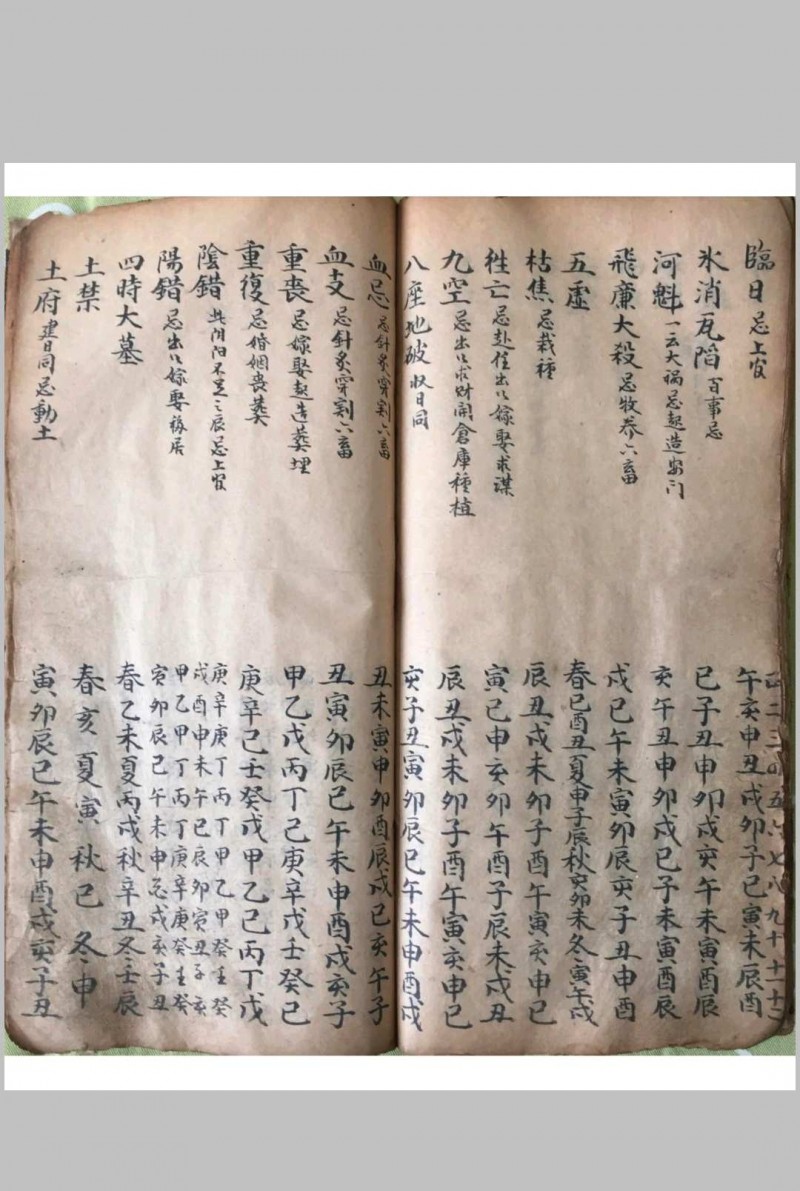 正二三四五六七八九十十一十二
臨日 忌上官 午亥申丑戌卯子巳寅未辰酉
氷消瓦陷 百事忌 巳子丑申卯戌亥午未寅酉辰
河魁 一云大禍忌起造安门 亥午丑申卯戌巳子未寅酉辰
飛廉大殺 忌牧养六畜 戌巳午未寅卯辰亥子丑申酉
五虚 春巳酉丑夏申子辰秋亥卯未冬寅午戌
枯焦 忌栽種 辰丑戌未卯子酉午寅亥申巳
徃亡 忌赴任出行嫁娶求謀 寅巳申亥卯午酉子辰未戌丑
九空 忌出行求财開倉庫種植 辰丑戌未卯子酉午寅亥申巳
八座地破 收日同 亥子丑寅卯辰巳午未申酉戌
血忌 忌針炙穿割六畜 丑未寅申卯酉辰戌巳亥午子
血支 忌針炙穿割六畜 丑寅卯辰巳午未申酉戌亥子
重喪 忌嫁娶起造葬埋 甲乙戊丙丁己庚辛戊壬癸己
重復 忌婚姻喪葬 庚辛己壬癸戊甲乙己丙丁戊
陰錯 此阴阳不足之辰忌上官 庚辛庚丁丙丁甲乙甲癸壬癸
戌酉申未午巳辰卯寅丑子亥
陽錯 忌出行嫁娶移居 甲乙甲丁丙丁庚辛庚癸壬癸
寅卯辰巳午未申酉戌亥子丑
四時大墓 春乙未夏丙戌秋辛丑冬壬辰
土禁 春亥夏寅秋巳冬申
土府 建日同忌動土 寅卯辰巳午未申酉戌亥子丑